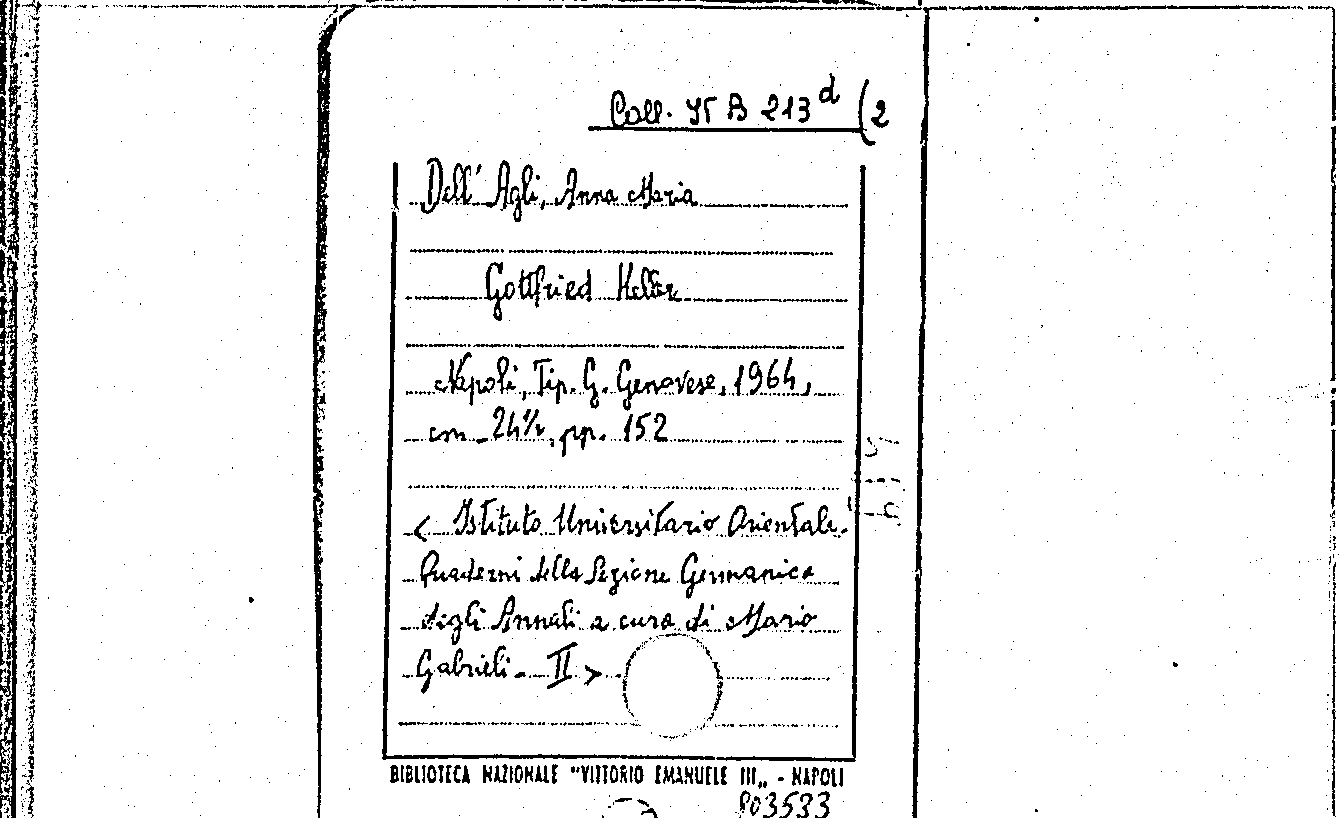 Coll. VI B 213 d (2
Dell' Agli, Anna Maria
Gottfried Keller
Napoli, Tip. G. Genovese, 1964,
cm 24½, pp. 152
< Istituto Universitario Orientale.
Quaderni della Sezione Germanica
degli Annali a cura di Mario
Gabrieli - II >
BIBLIOTECA NAZIONALE "VITTORIO EMANUELE III„ - NAPOLI
803533